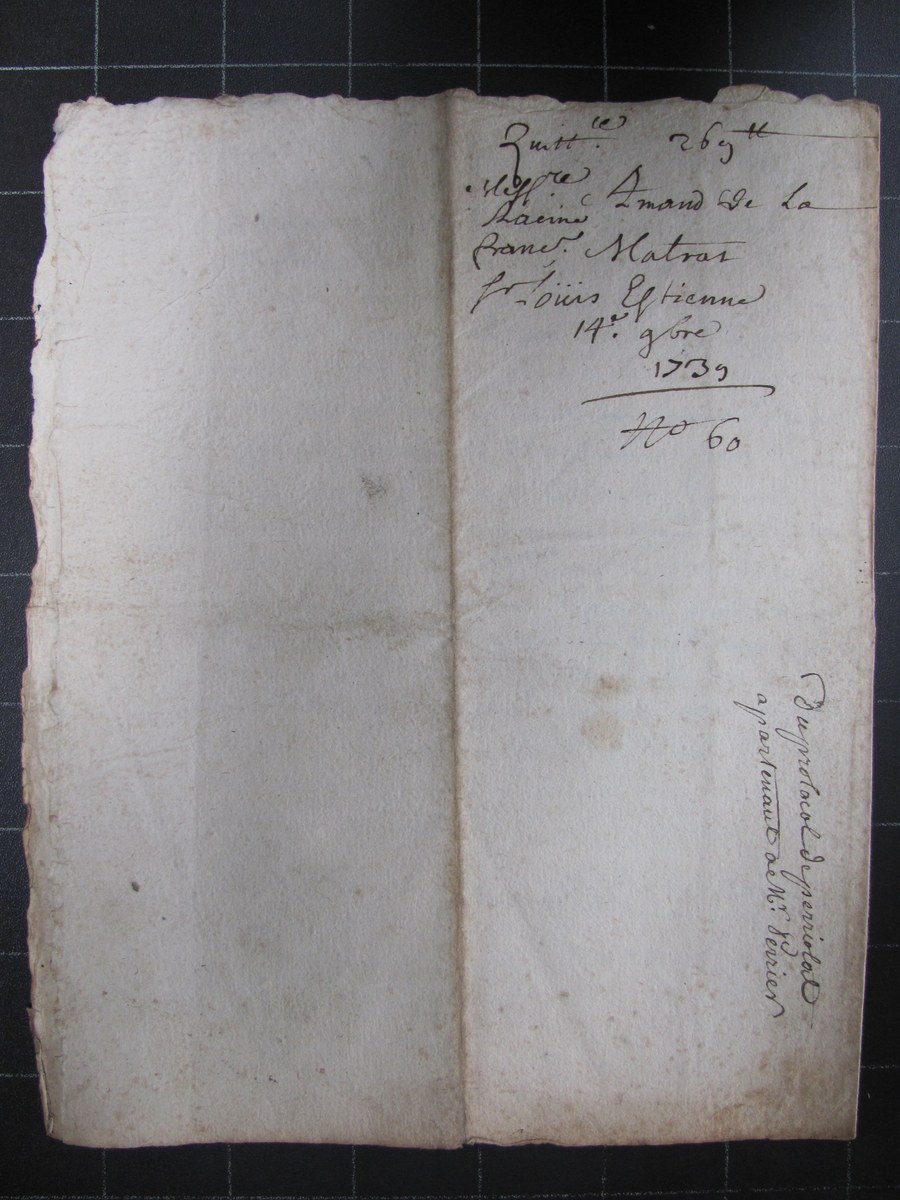 Quitt.ce 269tt
Messre Amand de La
Racine
franc. Matras
Sr Loüis Estienne
14e. 9bre
1739
No 60
Du protocol de perriolat
apartenant a Mr. Verrier